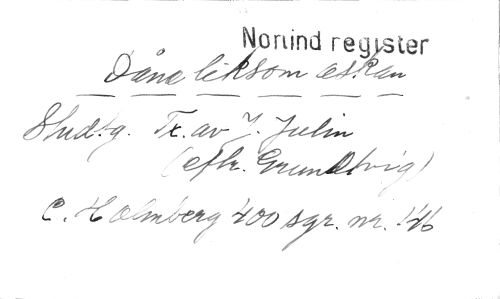 Nonind register
Dåna liksom åskan
Studtg. Tx. av J. Julin
(eftr. Grundtvig)
C. Holmberg 400 sgr. nr. 146